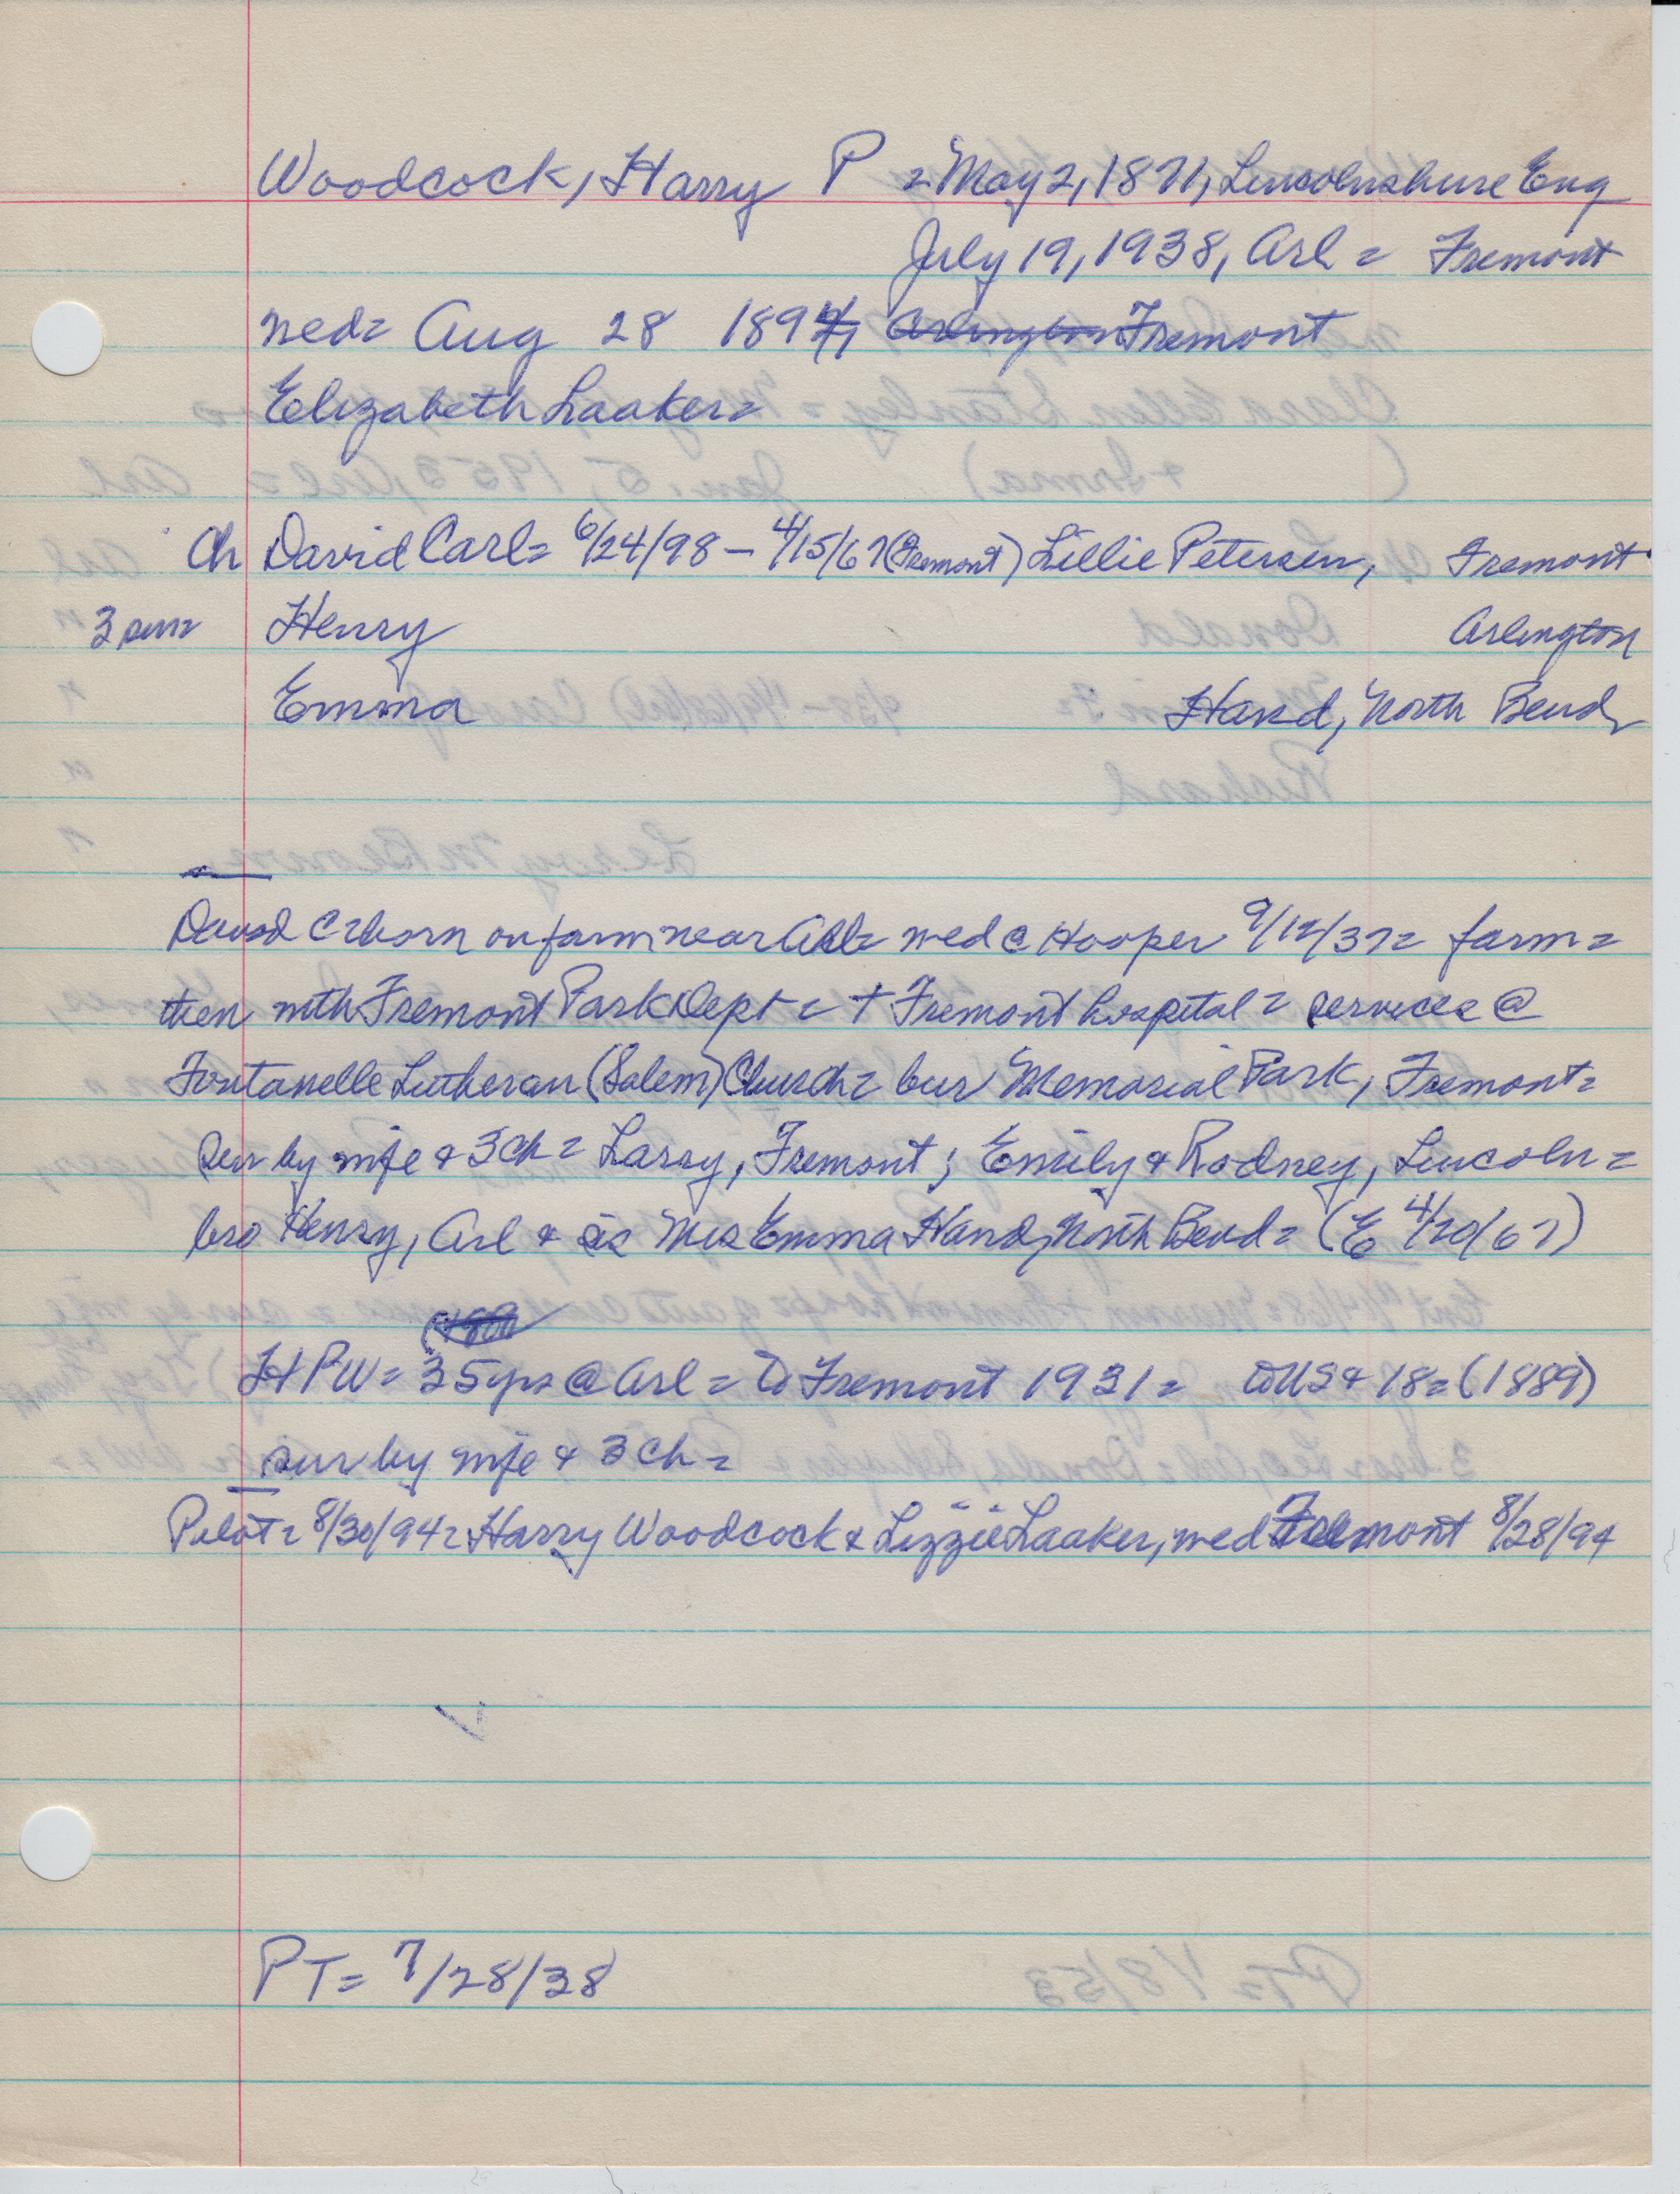 Woodcock, Harry P = May 2, 1871, Lincolnshire Eng
July 19, 1938, Arl = Fremont
med= Aug 28 1894, Arlington Fremont
Elizabeth Laaker=
Ch David Carl= 6/24/98 - 4/15/67 (Fremont) Lillie Petersen, Fremont
3 sur= Henry Arlington
Emma Hand, North Bend
David C = born on farm near Arl= med @ Hooper 9/12/37= farm=
then with Fremont Park Dept = + Fremont hospital = services @
Fontanelle Lutheran (Salem) Church = bur Memorial Park, Fremont=
sur by wife & 3 ch = Larry, Fremont; Emily & Rodney, Lincoln=
bro Henry, Arl & sis Mrs Emma Hand, North Bend= (E 4/20/67)
HPW= 35 yrs @ Arl = to Fremont 1931= to US @ 18= (1889)
sur by wife & 3 ch =
Pilot= 8/30/94= Harry Woodcock & Lizzie Laaker, med Fremont 8/28/94
PT= 7/28/38